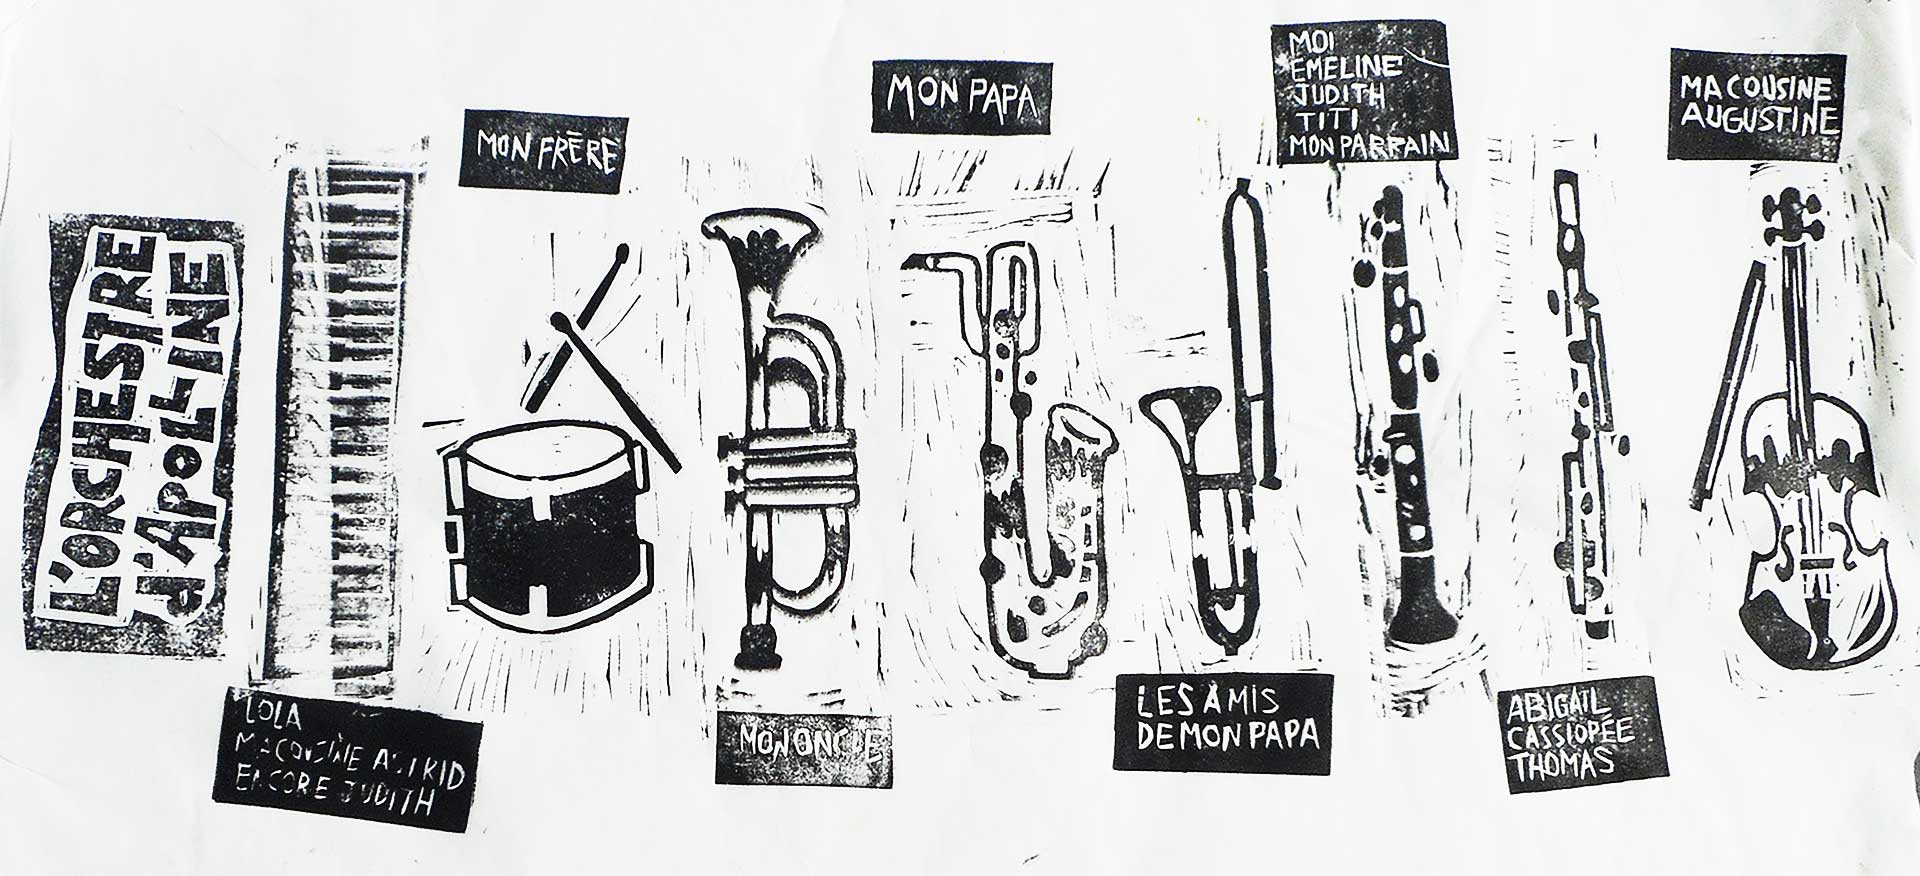 L'ORCHESTRE
d'APOLLINE
LOLA
MA COUSINE ASTRID
ENCORE JUDITH
MON FRÈRE
MON ONCLE
MON PAPA
LES AMIS
DE MON PAPA
MOI
EMELINE
JUDITH
TITI
MON PARRAIN
ABIGAIL
CASSIOPÉE
THOMAS
MA COUSINE
AUGUSTINE